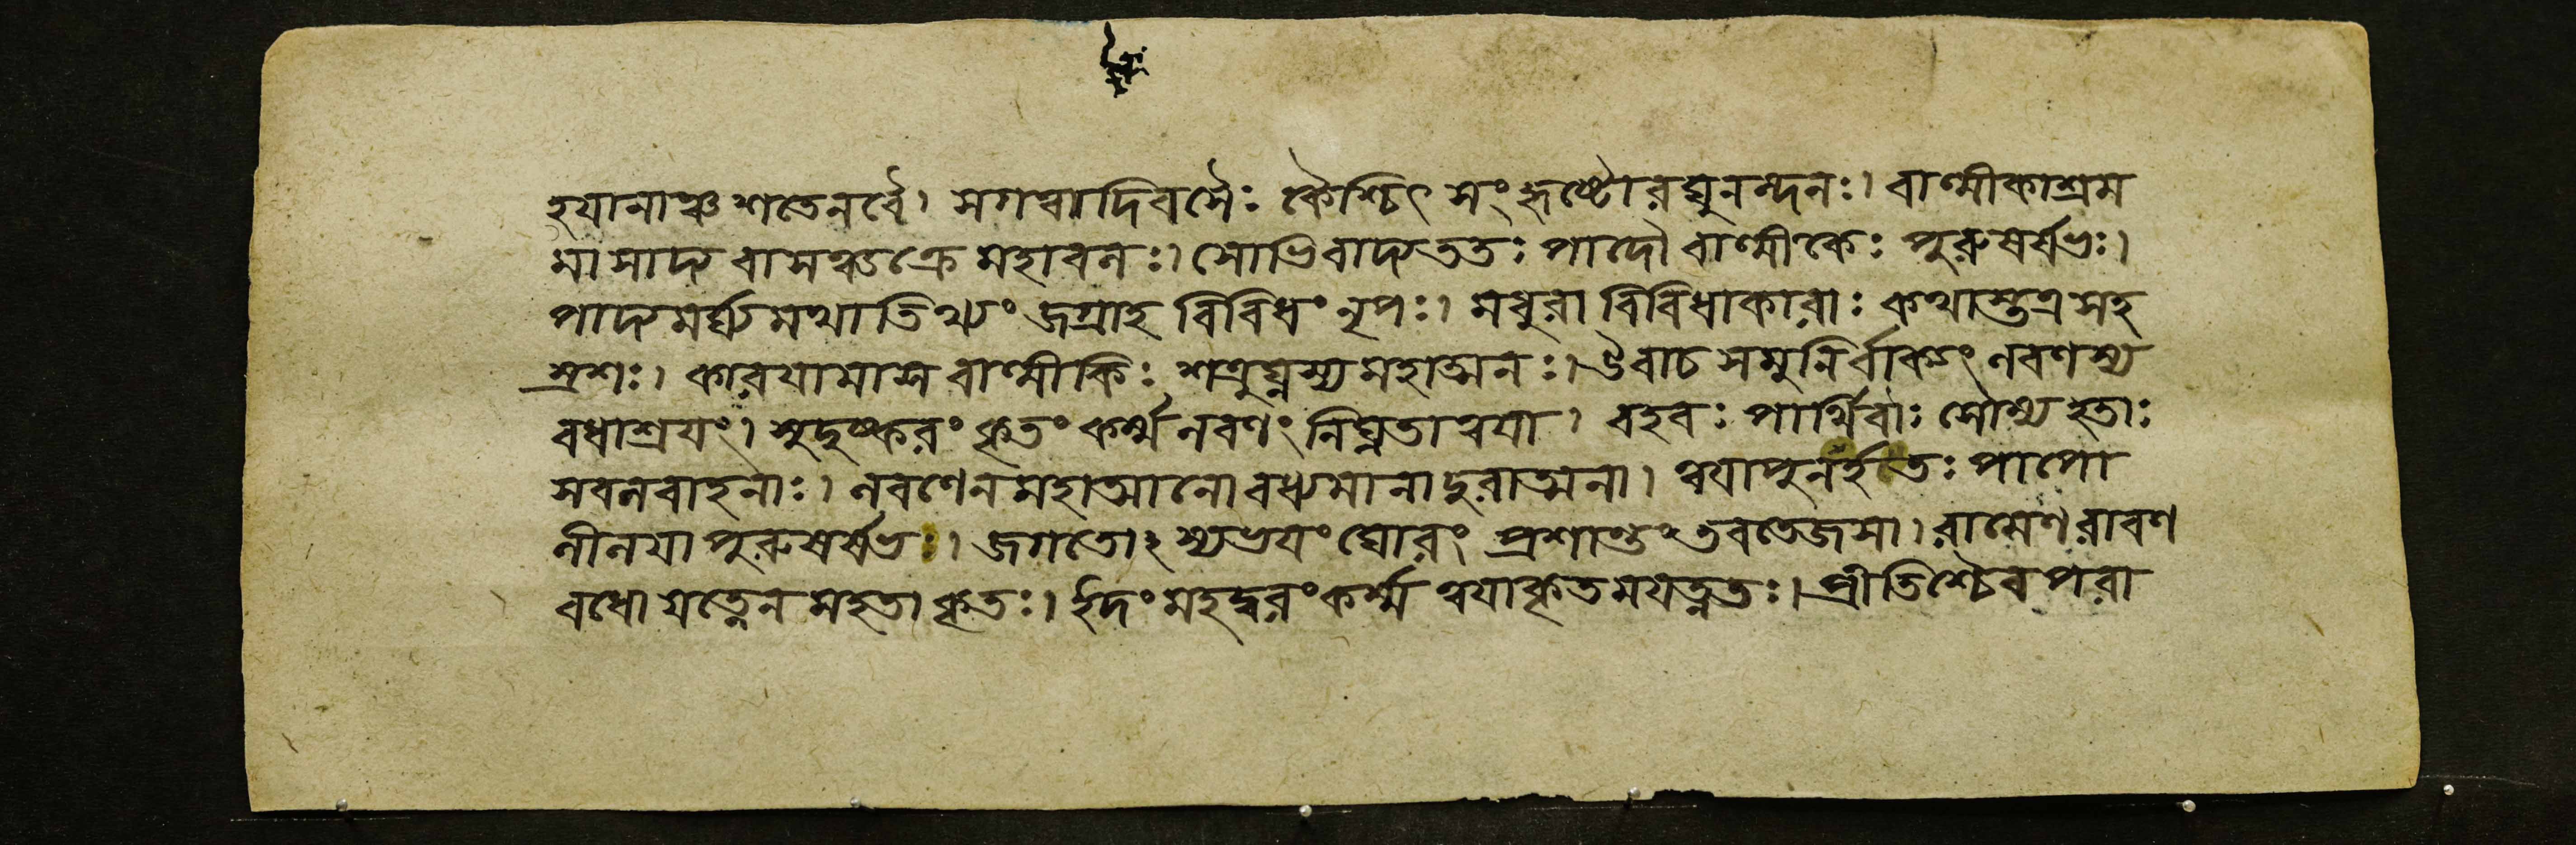 হযানাঞ্চ শতেনর্বৈ। সগত্বাদিবসৈঃ কৈশ্চিৎ সংহৃষ্টোরঘুনন্দনঃ। বাল্মীকাশ্রম
মাসাদ্য বাসঞ্চক্রে মহাবলঃ। সোভিবাদ্যততঃ পাদৌ বাল্মীকেঃ পুরুষর্ষভঃ।
পাদ্যমর্ঘ্যমথাতিথ্যং জগ্রাহ বিবিধং নৃপঃ। মধুরা বিবিধাকারাঃ কথাস্তত্রসহ
স্রশঃ। কারযামাস বাল্মীকিঃ শত্রুঘ্নস্যমহাত্মনঃ। উবাচ সমুনির্বাক্যং লবণস্য
বধাশ্রযং। সুদুষ্করং কৃতং কর্ম্ম লবণং নিঘ্নতাত্বযা। বহবঃ পার্থিবাঃ সৌম্য হতাঃ
সবলবাহনাঃ। লবণেনমহাত্মানো বধ্যমানাদুরাত্মনা। ত্বযাপুনর্হতঃ পাপো
লীলযা পুরুষর্ষভঃ। জগতোঽস্যভযং ঘোরং প্রশান্তং তবতেজসা। রামেণ রাবণ
বধো যত্নেন মহতা কৃতঃ। ইদং মহদ্বরং কর্ম্ম ত্বযাকৃতমযত্নতঃ। প্রীতিশ্চৈব পরা